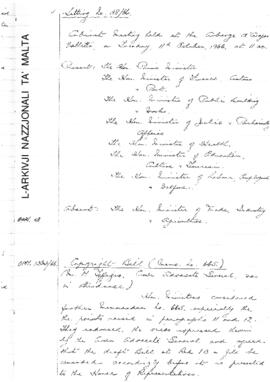 Sitting No. 38/66.
Cabinet Meeting held at the Auberge d'Aragon
Valletta on Tuesday 11th October, 1966, at 11 a.m.
Present: The Hon. Prime Minister
The Hon. Minister of
Port.
The Hon. Minister of Public Building
& Works
The Hon. Minister of Justice & Parliamentary
Affairs
The Hon. Minister of Health,
The Hon. Minister of Education,
Culture & Tourism
The Hon. Minister of Labour, Employment
& Welfare.
Absent: The Hon. Minister of Trade, Industry
& Agriculture.
L-ARKIVJI NAZZJONALI TA' MALTA
Copyright Bill (Memo. No. 665).
(Mr. M. Crown Advocate General, was
in attendance.)
Hon. Ministers considered
further Memorandum No. 665, especially the
the points raised in paragraphs 11 and 12.
They endorsed the views expressed
by the Crown Advocate General and agreed
that the draft Bill at Red 13 in file be
amended accordingly before it is presented
to the House of Representatives.